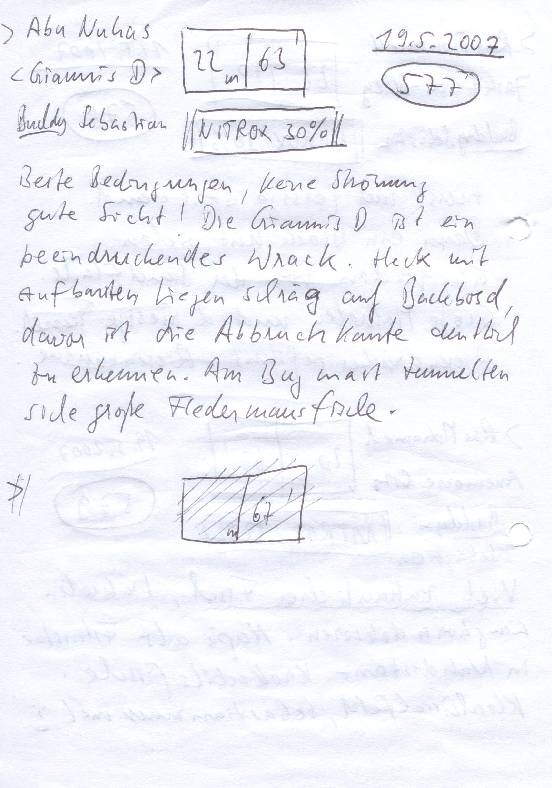 > Abu Nuhas
22 m 63'
19.5.2007
<Giannis D>
577
Buddy Sebastian
NITROX 30%
Beste Bedingungen, keine Strömung
gute Sicht! Die Giannis D ist ein
beeindruckendes Wrack. Heck mit
Aufbauten liegen schräg auf Backbord,
davor ist die Abbruchkante deutlich
zu erkennen. Am Bug mast tummelten
sich große Fledermausfische.
m 67'